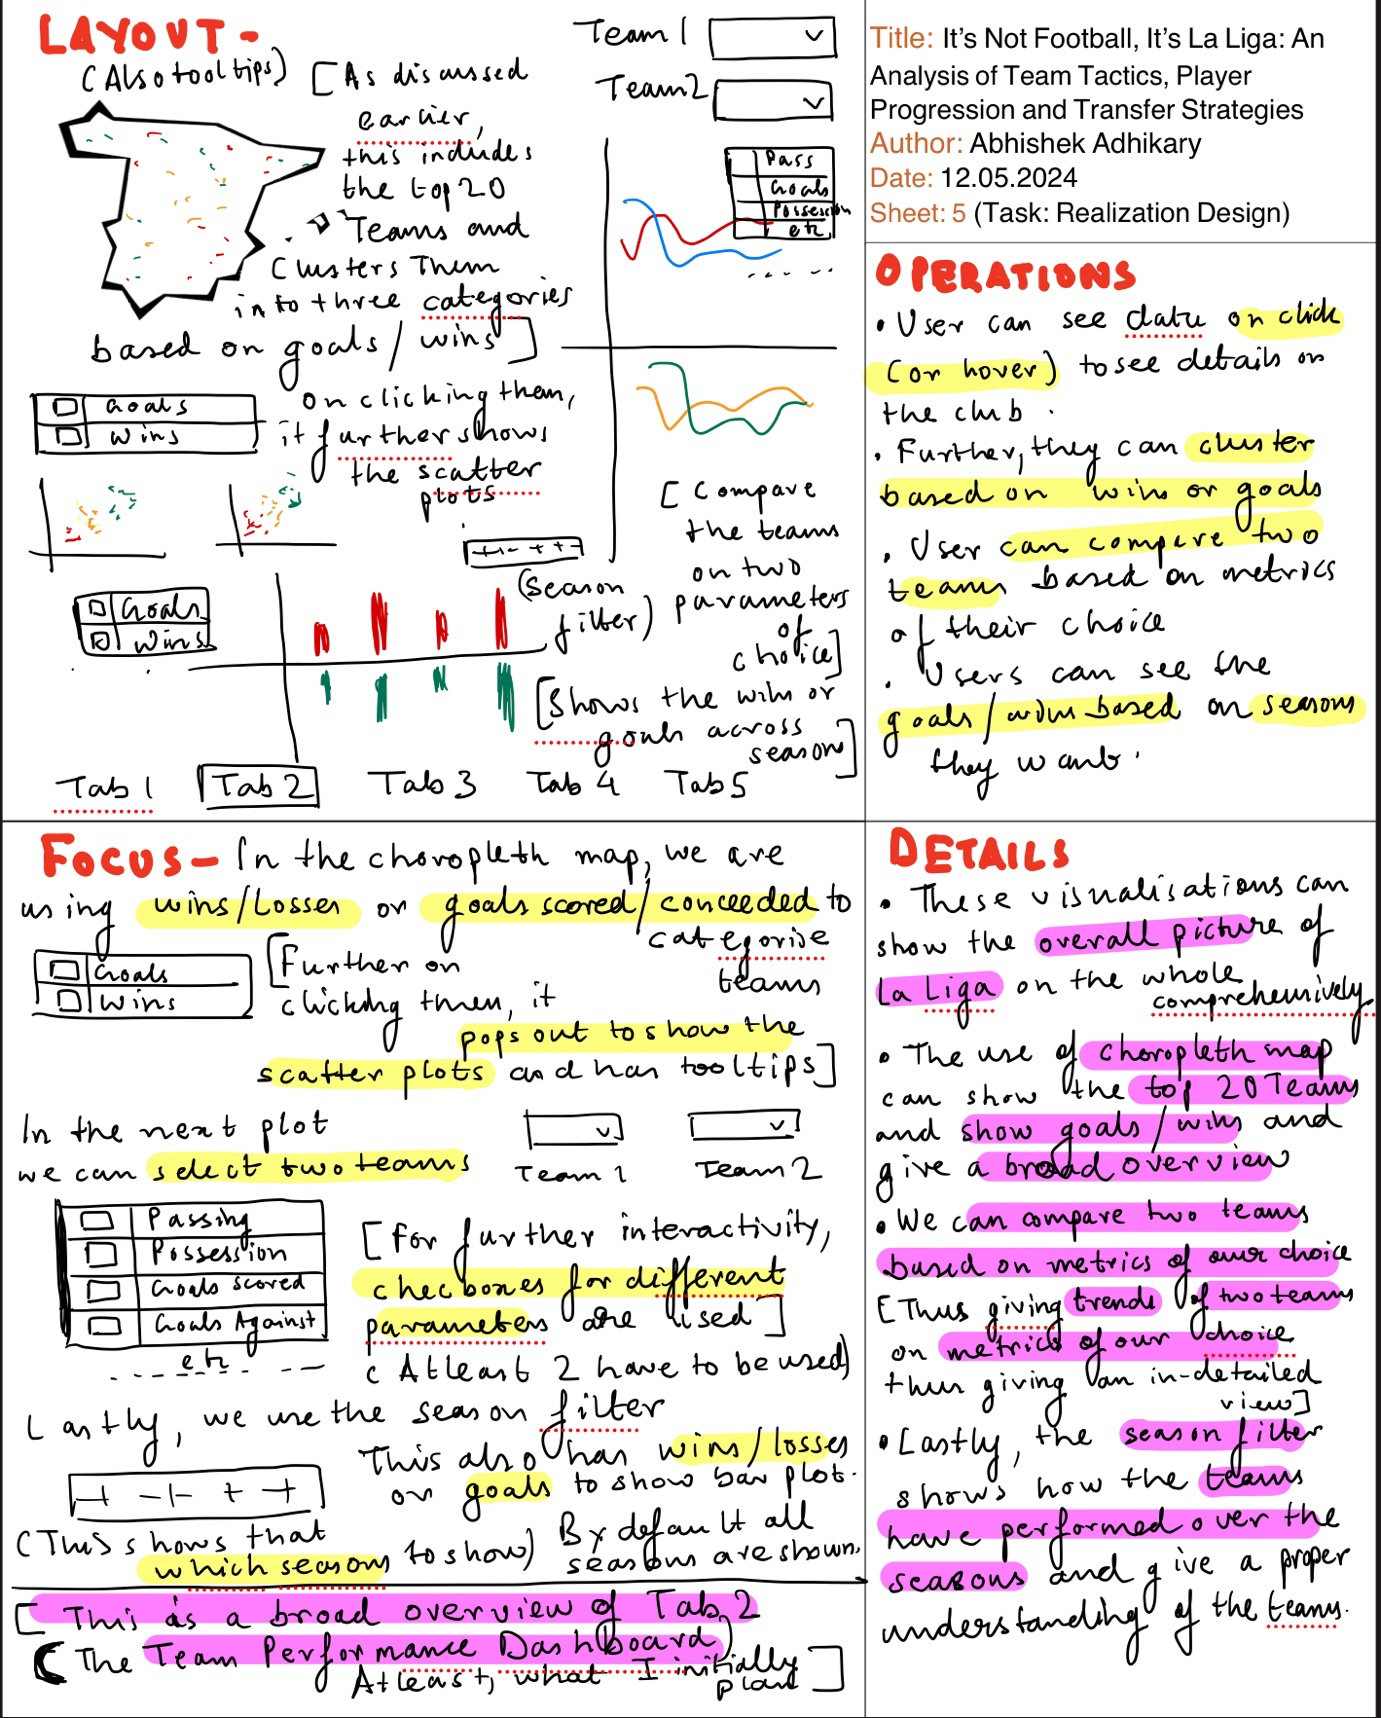 LAYOUT -
(Also tool tips)
[As discussed
earlier,
this includes
the top 20
Teams and
Clusters Them
into three categories
based on goals / wins]
Goals
Wins
on clicking them,
it further shows
the scatter
plots
Team 1
Team 2
Pass
Goals
Possession
etc
[Compare
the teams
on two
parameters
of
choice]
(Season
filter)
Goals
Wins
[Shows the wins or
goals across
season]
Tab 1 Tab 2 Tab 3 Tab 4 Tab 5
Title: It's Not Football, It's La Liga: An
Analysis of Team Tactics, Player
Progression and Transfer Strategies
Author: Abhishek Adhikary
Date: 12.05.2024
Sheet: 5 (Task: Realization Design)
OPERATIONS
• User can see data on click
(or hover) to see details on
the club.
• Further, they can cluster
based on wins or goals
• User can compare two
teams based on metrics
of their choice
• Users can see the
goals / wins based on seasons
they want.
FOCUS - In the choropleth map, we are
using wins/Losses or goals scored/conceeded to
categorise
teams
Goals
Wins
[Further on
clicking them, it
pops out to show the
scatter plots and has tooltips]
In the next plot
we can select two teams
Team 1 Team 2
Passing
Possession
Goals scored
Goals Against
etc
[For further interactivity,
checboxes for different
parameters are used]
(Atleast 2 have to be used)
Lastly, we use the season filter
This also has wins/losses
or goals to show bar plot.
(This shows that
which seasons to show)
By default all
seasons are shown.
[This is a broad overview of Tab 2
(The Team Performance Dashboard)
Atleast, what I initially
plan]
DETAILS
• These visualisations can
show the overall picture of
La Liga on the whole
comprehensively
• The use of choropleth map
can show the top 20 Teams
and show goals / wins and
give a broad overview
• We can compare two teams
based on metrics of our choice
[Thus giving trends of two teams
on metrics of our choice
thus giving an in-detailed
view]
• Lastly, the season filter
shows how the teams
have performed over the
seasons and give a proper
understanding of the teams.